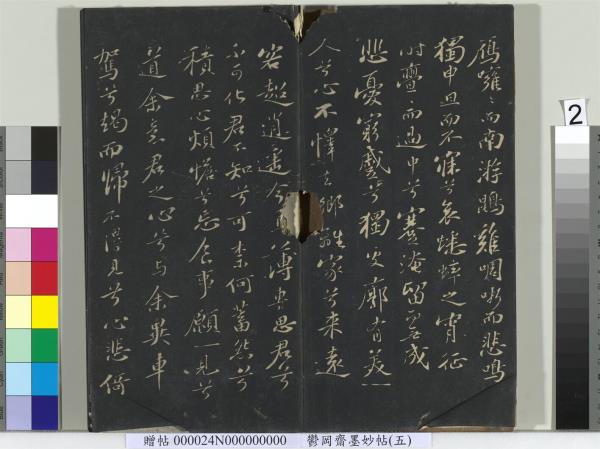 鴈噰〻而南游鵾雞啁哳而悲鳴
獨申旦而不寐兮哀蟋蟀之宵征
時亹〻而過中兮蹇淹留而無成
悲憂窮慼兮獨處廓有美一
人兮心不懌去鄉離家兮来遠
客超逍遙今焉薄專思君兮
不可化君不知兮可柰何蓄怨兮
積思心煩憺兮忘食事願一見兮
道余意君之心兮与余異車
駕兮朅而歸不得見兮心悲倚
2
贈帖 000024N000000000 鬱岡齋墨妙帖(五)